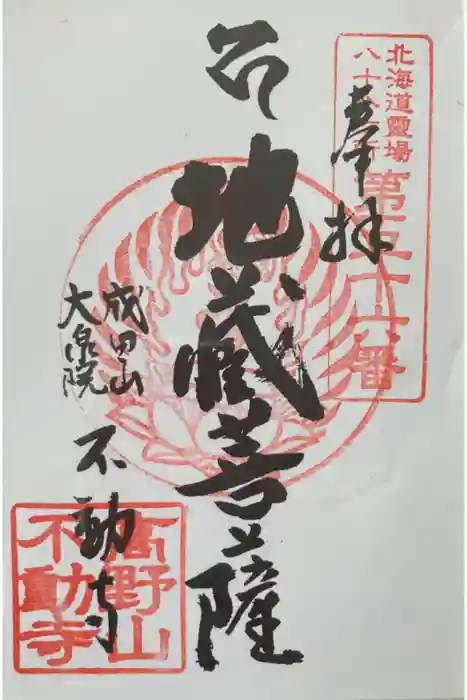 北海道霊場
八十八ヶ所
第五十六番
奉拝
地蔵菩薩
成田山
大泉院
不動寺
高野山
不動寺